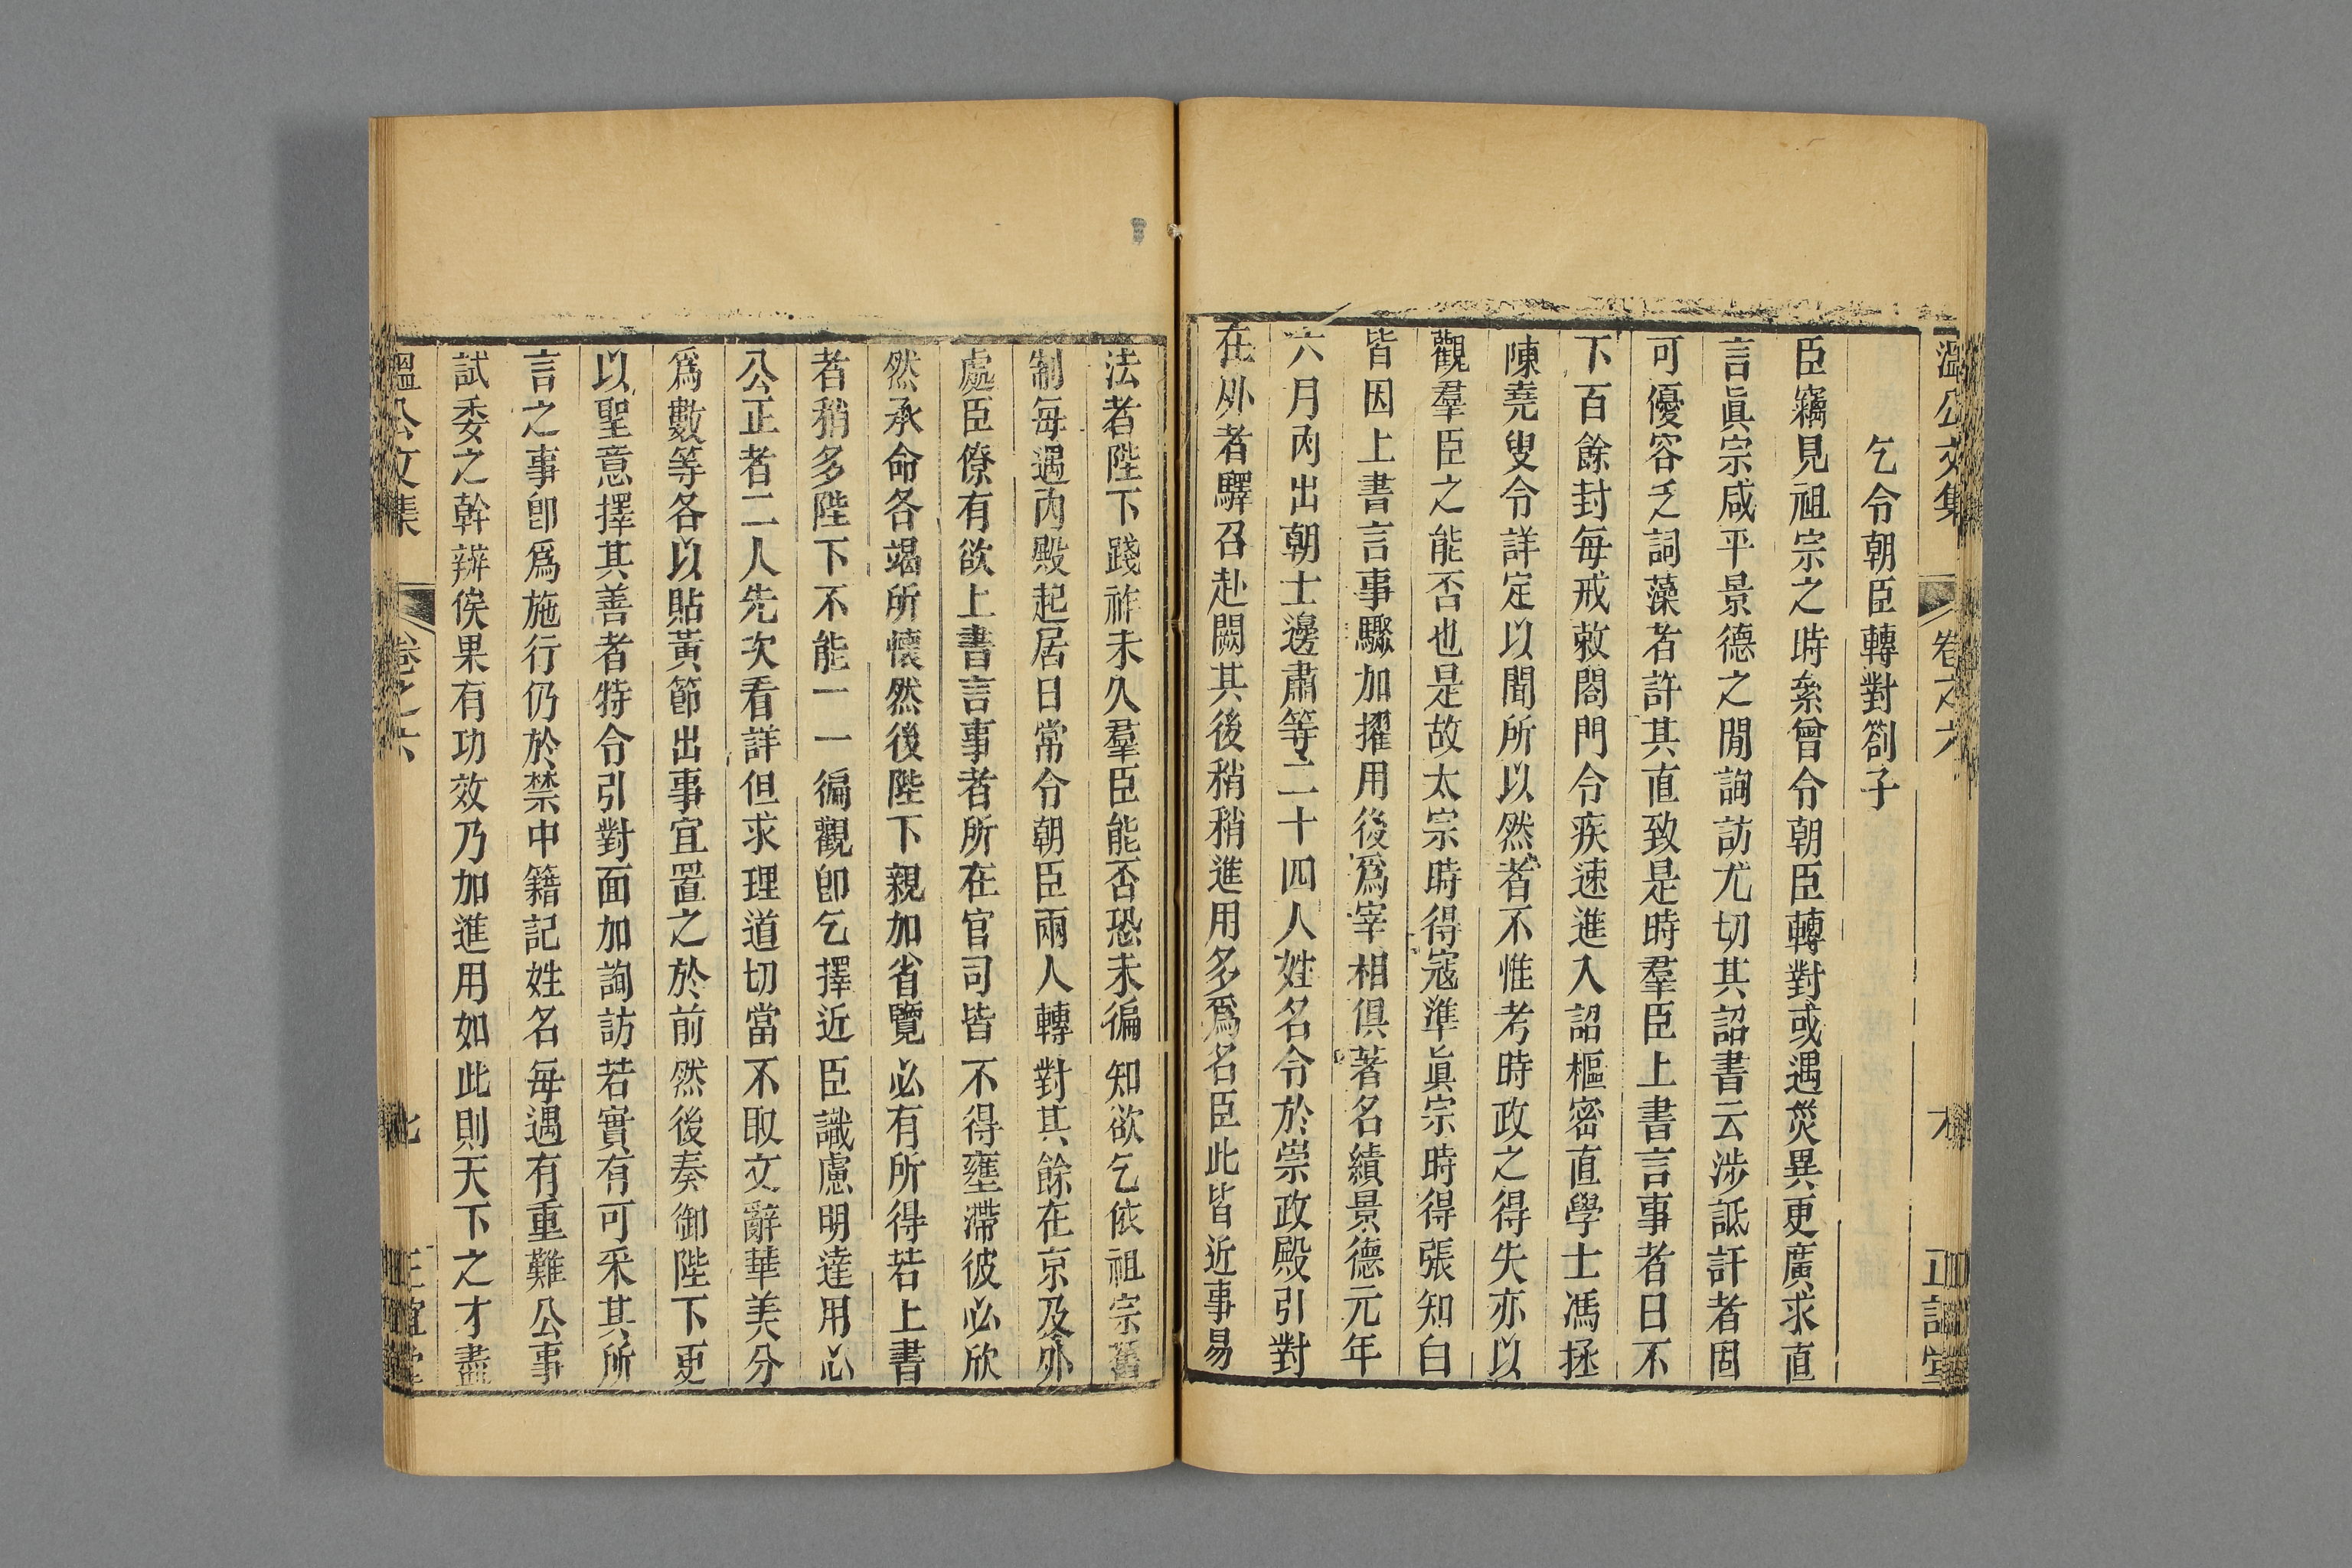 溫公文集 卷之六
乞令朝臣轉對劄子
臣竊見祖宗之時亲曾令朝臣轉對或遇災異更廣求直
言眞宗咸平景德之閒詢訪尤切其詔書云涉詆訐者固
可優容乏詞藻者許其直致是時羣臣上書言事者日不
下百餘封每戒敕閤門令疾速進入詔樞密直學士馮拯
陳堯叟令詳定以聞所以然者不惟考時政之得失亦以
觀羣臣之能否也是故太宗時得寇準眞宗時得張知白
皆因上書言事驟加擢用後爲宰相俱著名績景德元年
六月內出朝士邊肅等二十四人姓名令於崇政殿引對
在外者驛召赴闕其後稍稍進用多爲名臣此皆近事易
法者陛下踐祚未久羣臣能否恐未徧知欲乞依祖宗舊
制每遇內殿起居日常令朝臣兩人轉對其餘在京及外
處臣僚有欲上書言事者所在官司皆不得壅滯彼必欣
然承命各竭所懷然後陛下親加省覽必有所得若上書
者稍多陛下不能一一徧觀卽乞擇近臣識慮明達用心
公正者二人先次看詳但求理道切當不取文辭華美分
爲數等各以貼黃節出事宜置之於前然後奏御陛下更
以聖意擇其善者特令引對面加詢訪若實有可采其所
言之事卽爲施行仍於禁中籍記姓名每遇有重難公事
試委之幹辦俟果有功效乃加進用如此則天下之才盡
溫公文集 卷之六 正誼堂